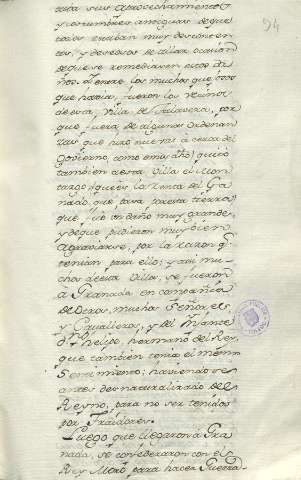 94
toda sus aprovechamientos
y costumbres antiguas de que
todos estaban muy descontentos
tos, y deseosos de allar ocasion
de que se remediasen estos da
ños. Y entre los muchos que esto
que hacia, fueron los vecinos
de esta Villa de Talavera, por
que fuera de algunas ordenan
zas que hizo nuevas à cerca del
Govierno, como emos dho, quitó
tambien a esta Villa el Mon
tazgo, que es la Renta del Ga
nado que pasa por esta tierra
que fué un daño muy grande,
y de que pudieron muy bien
agraviarse, por la razon q.
tenian para ello; y asi mu
chos de esta Villa, se fueron
à Granada en compañia
de otros, muchos Señores,
y Cavalleros, y del Ynfante
dn. Phelipe, hermano del Rey,
que tambien tenia el mismo
Sentimiento; haviendose
antes desnaturalizado del
Reyno, para no ser tenidos
por Traidores.
Luego que llegaron à Gra
nada, se confederaron con el
Rey Moro para hacer Guerra